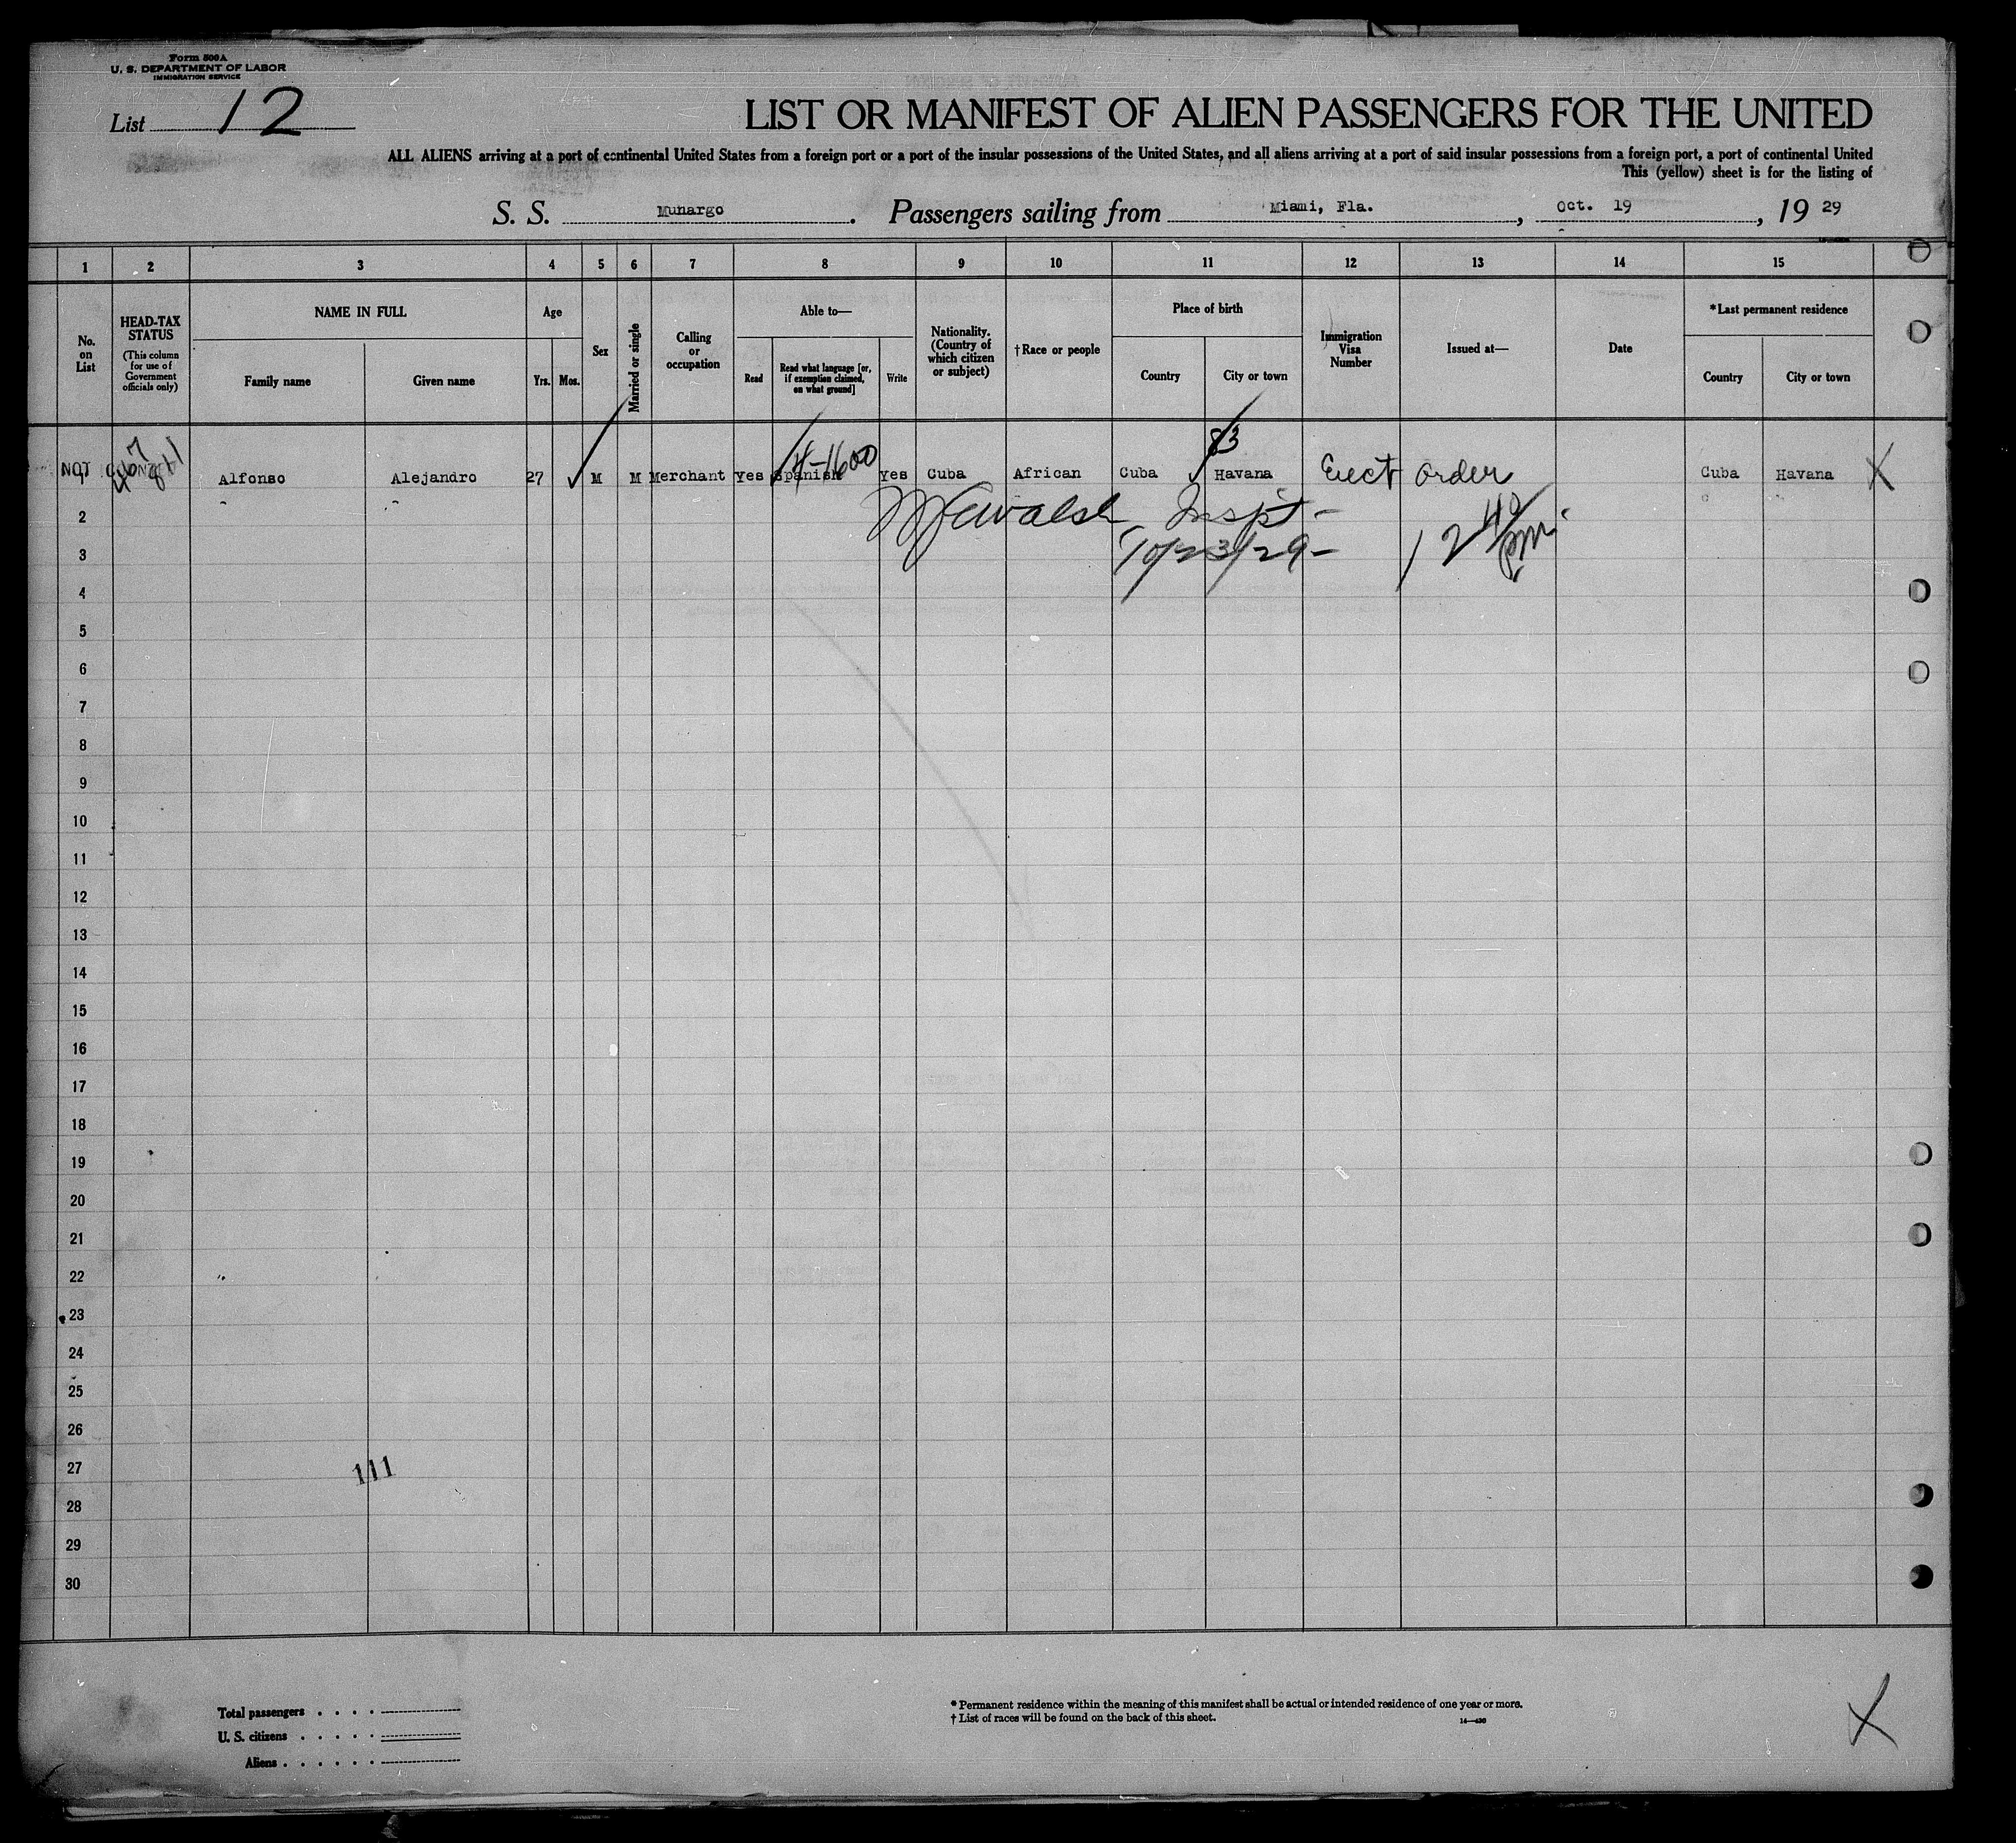 Form 500A
U. S. DEPARTMENT OF LABOR
IMMIGRATION SERVICE
List 12
LIST OR MANIFEST OF ALIEN PASSENGERS FOR THE UNITED
ALL ALIENS arriving at a port of continental United States from a foreign port or a port of the insular possessions of the United States, and all aliens arriving at a port of said insular possessions from a foreign port, a port of continental United
This (yellow) sheet is for the listing of
S. S. Munargo. Passengers sailing from Miami, Fla., Oct. 19, 19 29
1 2 3 4 5 6 7 8 9 10 11 12 13 14 15
No. on List
HEAD-TAX STATUS
(This column for use of Government officials only)
NAME IN FULL
Family name
Given name
Age
Yrs. Mos.
Sex
Married or single
Calling or occupation
Able to—
Read
Read what language [or, if exemption claimed, on what ground]
Write
Nationality. (Country of which citizen or subject)
†Race or people
Place of birth
Country
City or town
Immigration Visa Number
Issued at—
Date
*Last permanent residence
Country
City or town
83
14-1600
NOT Alfonso Alejandro 27 M M Merchant Yes Spanish Yes Cuba African Cuba Havana Order Cuba Havana X
2 Walsh Inspt-
3 10/23/29- 12 40 pm.
4
5
6
7
8
9
10
11
12
13
14
15
16
17
18
19
20
21
22
23
24
25
26
27 111
28
29
30
Total passengers
U. S. citizens
Aliens
* Permanent residence within the meaning of this manifest shall be actual or intended residence of one year or more.
† List of races will be found on the back of this sheet.
14—430
X